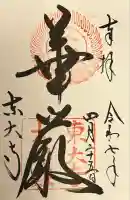 奉拝
令和七年
四月二十五日
華厳
東大寺